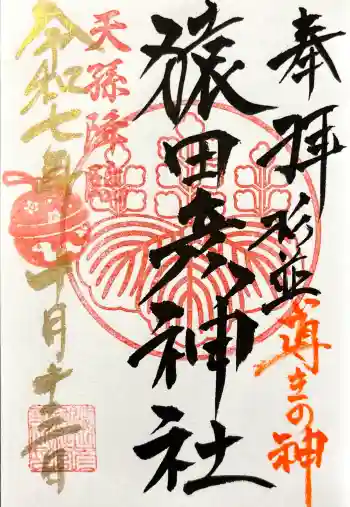 奉拝 杉並 導きの神
猿田彦神社
天孫降臨
令和七年十月十三日